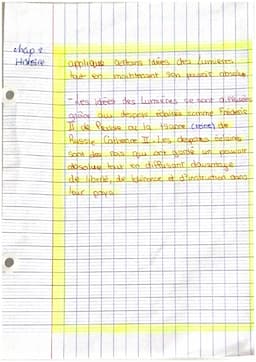 chap 2
Histoire
applique certains idées des Lumières
tout en maintenant son pouvoir absolue
- Les idées des Lumières se sont diffusées
grâce aux despote éclairés comme Frédéric
II de Prusse ou la tsarine (1762) de
Russie Catherine II. Les despotes éclairés
sont des rois qui ont gardé un pouvoir
absolue tout en diffusant davantage
de liberté, de tolérance et d'instruction dans
leur pays.